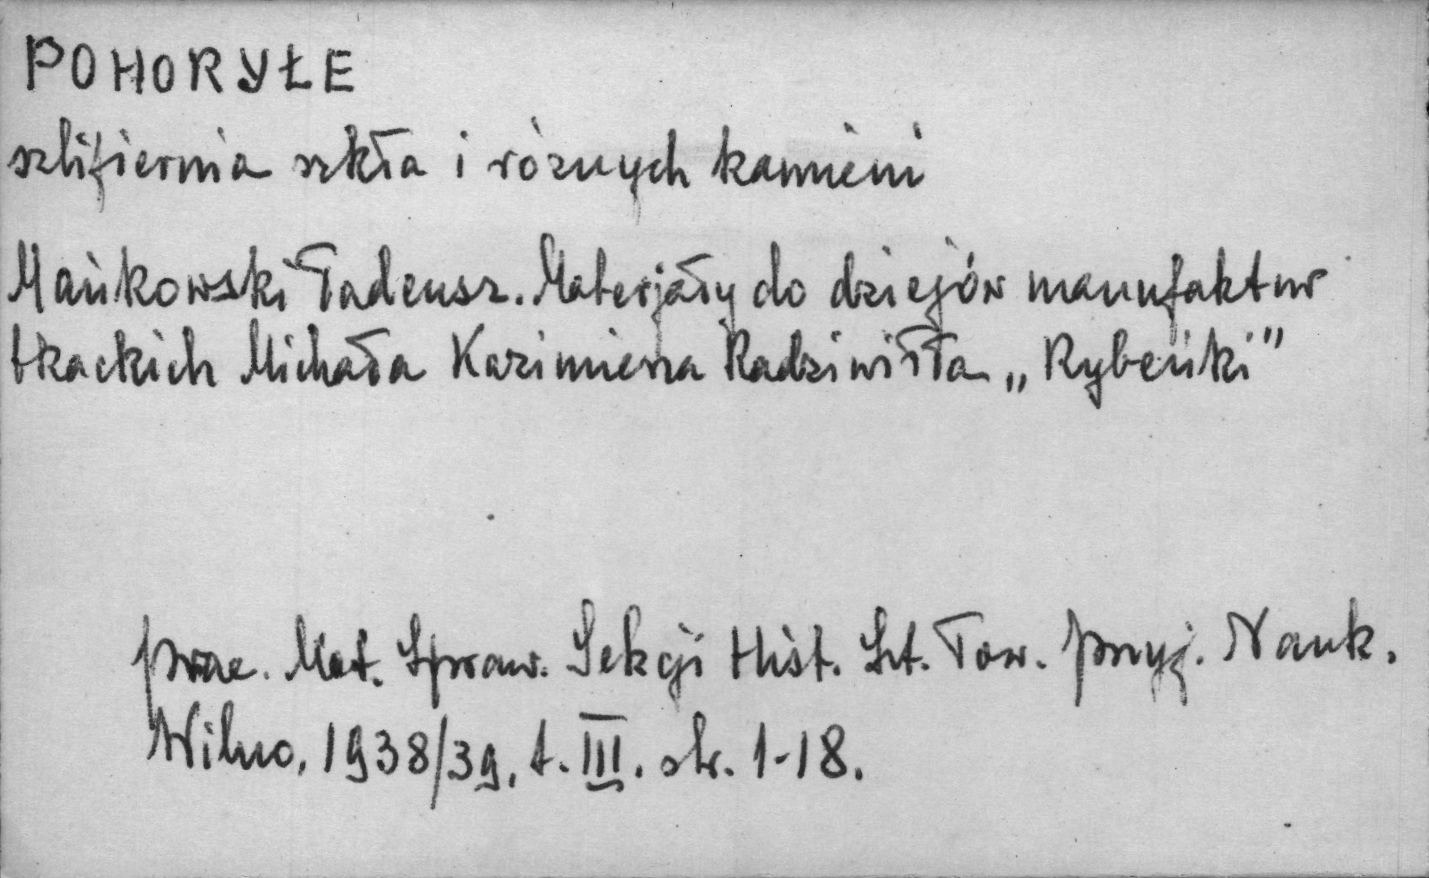 POHORYŁE
szlifiernia szkła i różnych kamieni
Mańkowski Tadeusz. Materjały do dziejów manufaktur
tkackich Michała Kazimierza Radziwiłła „Rybeńki”
Prac. Mat. Spraw. Sekcji Hist. Szt. Tow. Przyj. Nauk.
Wilno, 1938/39, t. III. str. 1-18.